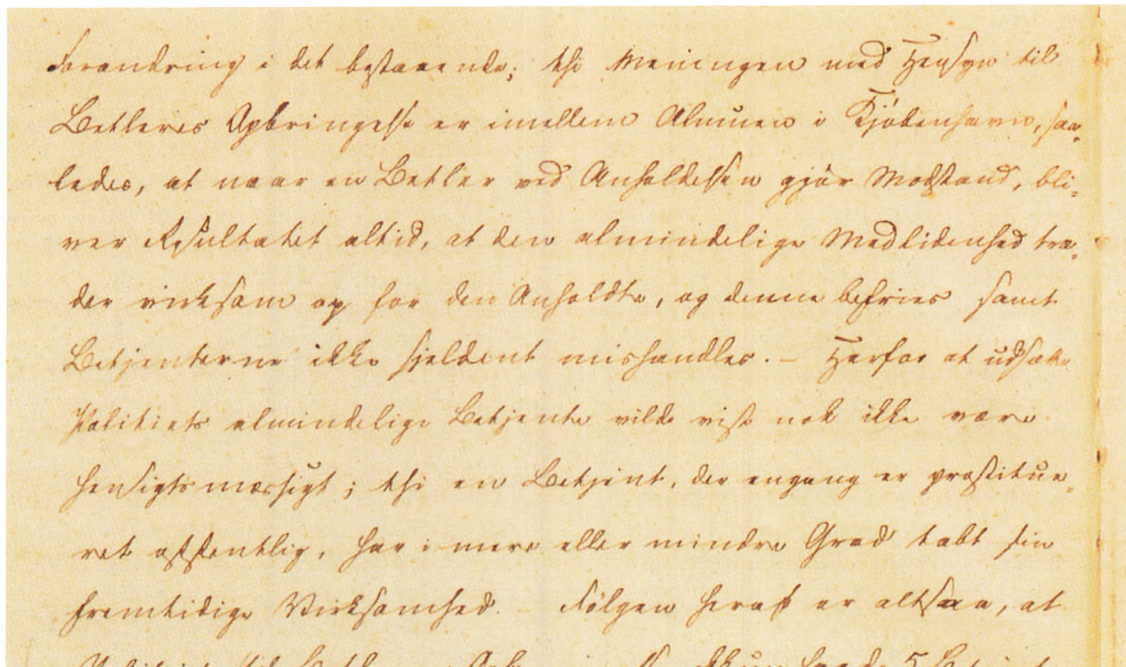 Forandring i det bestaaende; thi Meningen med Hensyn til
Betleres Opbringelse er imellem Almuen i Kjøbenhavn, saa-
ledes, at naar en Betler ved Anholdelsen gjør Modstand, bli-
ver Resultatet altid, at den almindelige Medlidenhed træ-
der virksom op for den Anholdte, og denne befries samt
Betjenterne ikke sjeldent mishandles. – Herfor at udsætte
Politiets almindelige Betjente vilde vist nok ikke være
hensigtsmæssigt; thi en Betjent, der engang er prostitue-
ret offentlig, har i mere eller mindre Grad tabt sin
fremtidige Virksomhed. – Følgen heraf er altsaa, at